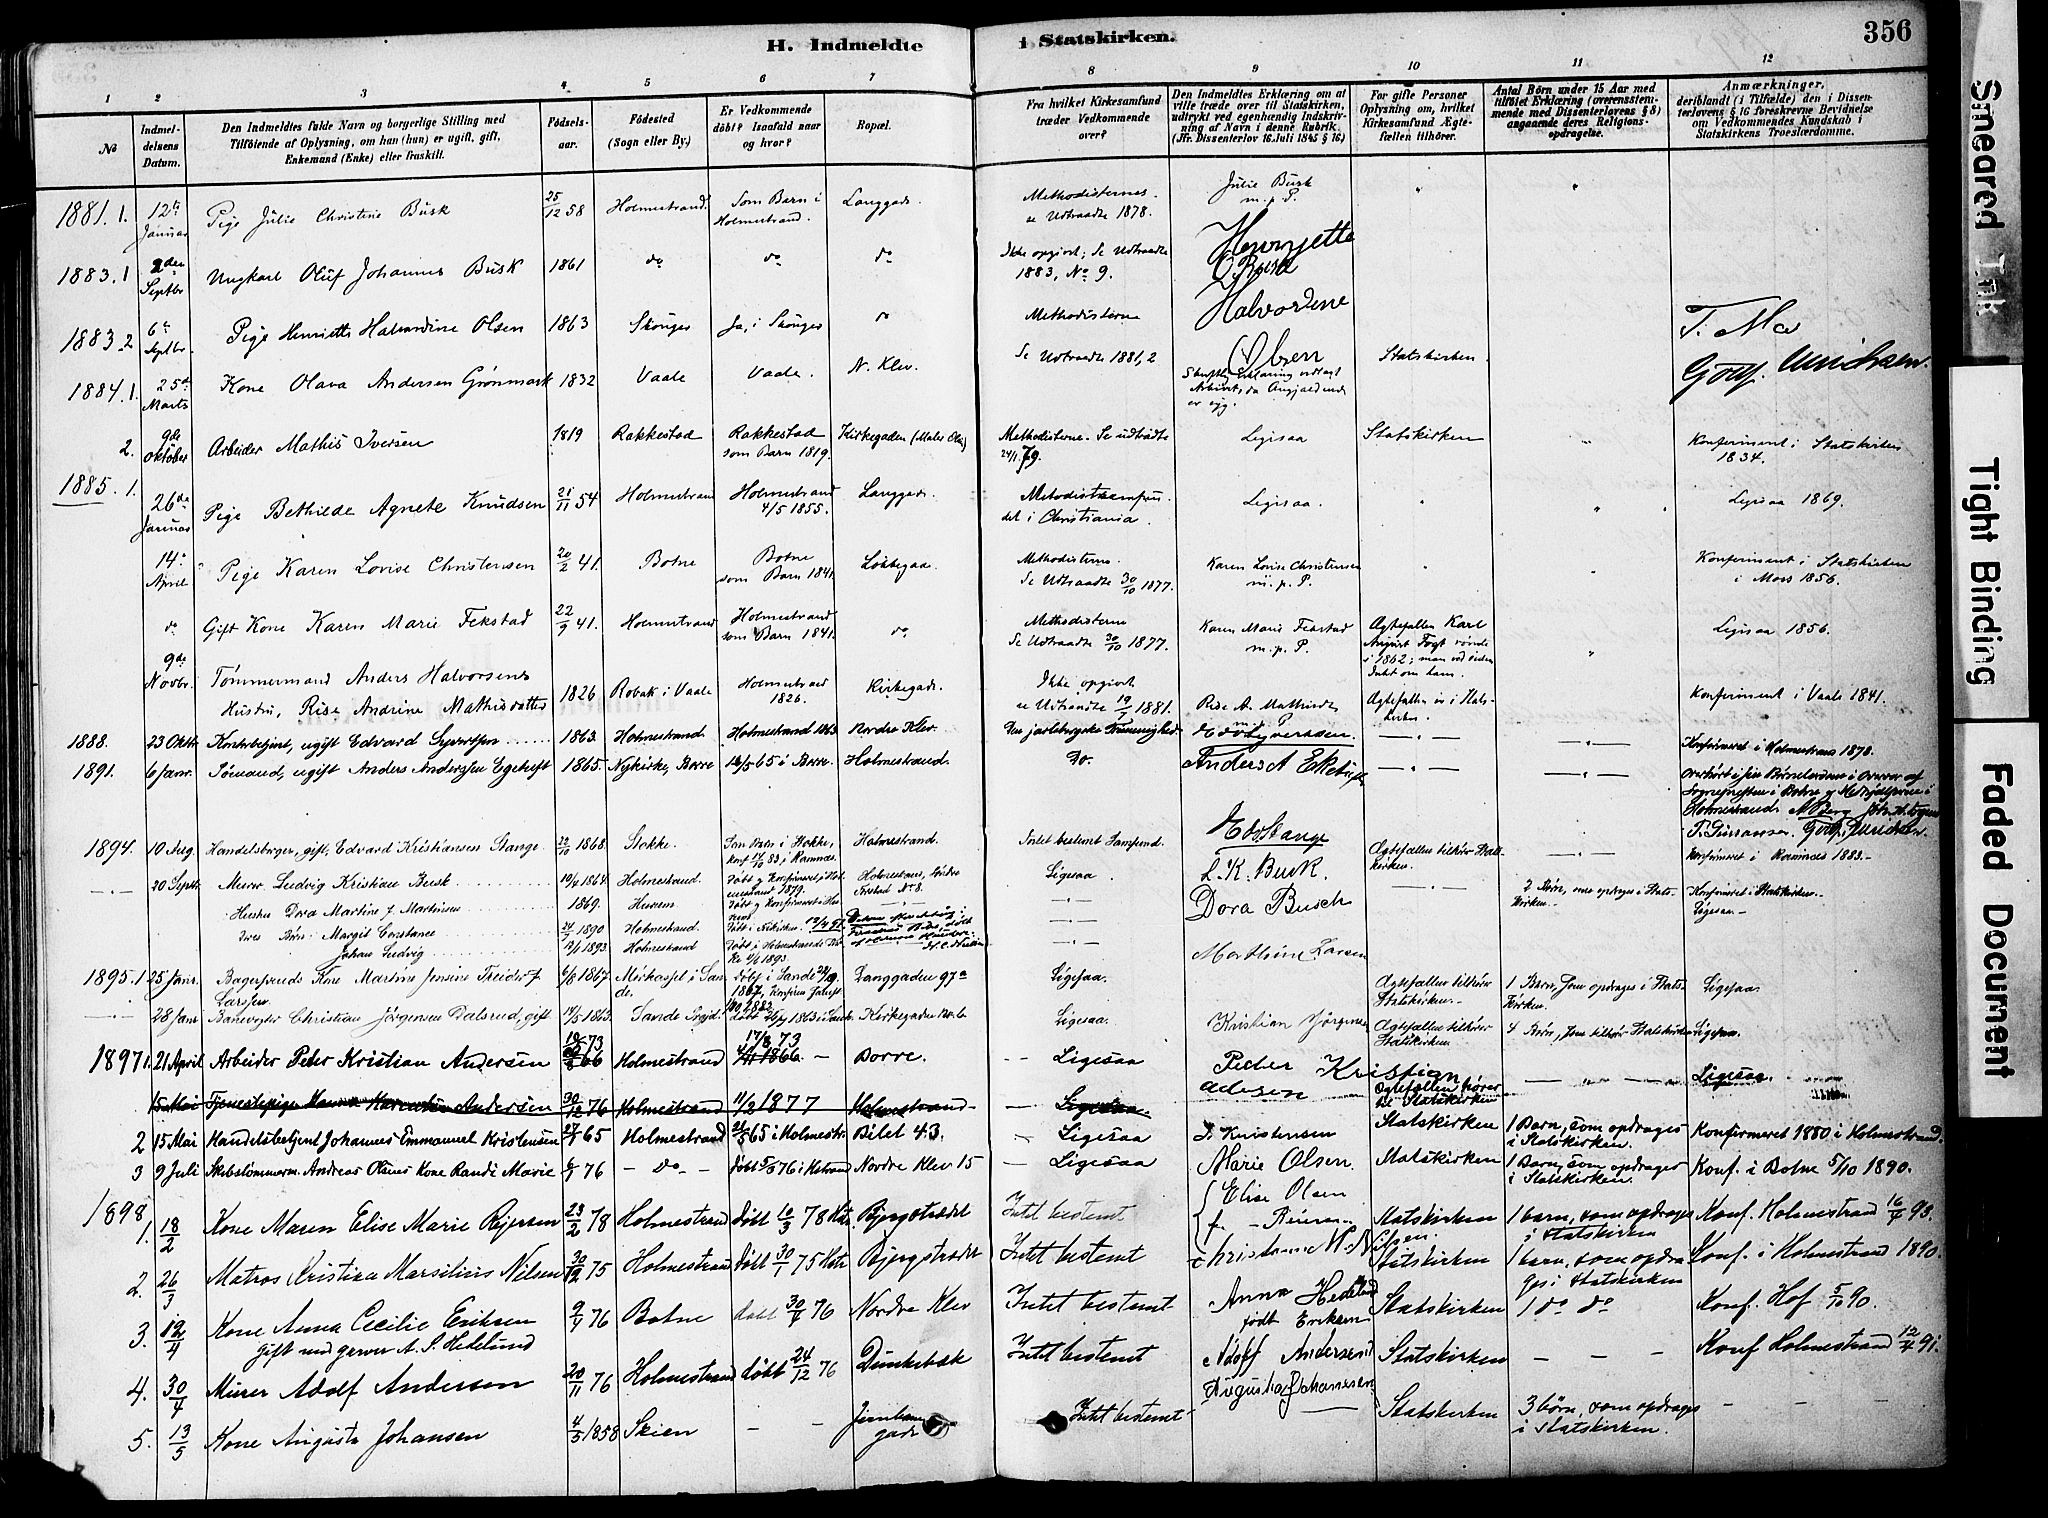 H. Indmeldte i Statskirken.
356
1 2 3 4 5 6 7 8 9 10 11 12
№
Indmel-
delsens
Datum.
Den Indmeldtes fulde Navn og borgerlige Stilling med
Tilföiende af Oplysning, om han (hun) er ugift, gift,
Enkemand (Enke) eller fraskilt.
Födsels-
aar.
Födested
(Sogn eller By.)
Er Vedkommende
döbt? Isaafald naar
og hvor?
Bopæl.
Fra hvilket Kirkesamfund
træder Vedkommende
over?
Den Indmeldtes Erklæring om at
ville træde over til Statskirken,
udtrykt ved egenhændig Indskriv-
ning af Navn i denne Rubrik.
(Jfr. Dissenterlov 16. Juli 1845 § 16.)
For gifte Personer
Oplysning om, hvilket
Kirkesamfund Ægte-
fællen tilhører.
Antal Börn under 15 Aar med
tilföiet Erklæring (overensstem-
mende med Dissenterlovens § 8)
angaaende deres Religions-
opdragelse.
Anmærkninger,
deriblandt (i Tilfælde) den i Dissen-
terlovens § 16 foreskrevne Bevidnelse
om Vedkommendes Kundskab i
Statskirkens Troeslærdomme.
1881. 1. 12te Januar Pige Julie Christine Busk 25/12 58 Holmestrand. Som Barn i Holmestrand. Langgade. Methodisternes. se Udtraadte 1878. Julie Busk m. p. P.
1883. 1 2den Septbr Ungkarl Oluf Johannes Busk 1861 do do do Ikke opgivt; Se Udtraadte 1883, No 9.
1883. 2 6te Septbr. Pige Henriette Halvardine Olsen 1863 Skouger Ja, i Skouger do Methodisterne Henrjette Halvordene Olsen
1884. 1. 25de Marts Kone Olava Andersen Grønmark 1832 Vaale Vaale. N. Klev. Se Udtraadte 1881, 2 Statskirken.
2. 9de Oktober Arbeider Mathis Iversen 1819 Rakkestad Rakkestad som Barn 1819. Kirkegaden Methodisterne. Se udtrådte 24/1 79. Ligesaa Statskirken Konfirmeret i Statskirken 1834.
1885. 1. 26de Januar Pige Bethilde Agnete Knudsen 21/11 54 Holmestrand Holmestrand 4/5 1855. Langgade. Metodistsamfun- det i Christiania. Ligesaa. Ligesaa 1869.
14de April Pige Karen Lovise Christensen 20/2 41. Botne Botne som Barn 1841. Løkkegaa. Methodisterne. Se Udtraadte 30/10 1877. Karen Lovise Christensen m. p. P. Konfirmeret i Statskirken i Moss 1856.
do Gift Kone Karen Marie Fekstad 22/9 41. Holmestrand Holmestrand som Barn 1841. do. Methodisterne Se Udtraadte 30/10 1877. Karen Marie Fekstad m. p. P. Ægtefællen Karl August Fogt rømte i 1862; man ved siden Intet om ham. Ligesaa 1856.
9de Novbr. Tømmermand Anders Halvorsens
Hustru, Rise Andrine Mathisdatter 1826 Robak i Vaale Holmestrand 1826. Kirkegade. Ikke opgivt se Udtraadte 1881. Rise A. Mathisdtr m. p. P. Ægtefællen er i Stats- kirken. Konfirmeret i Vaale 1841.
1888. 23 Oktbr. Kontorbetjent, ugift Edvard Syvertsen 1863. Holmestrand Holmestrand 1863 Nordre Klev. Edv. Syvertsen Konfirmeret i Holmestrand 1878.
1891. 6 Janr. Sømand, ugift Anders Anderssen 1865. Nykirke, Borre 65 i Borre. Holmestrand. Do.
1894. 10 Aug. Handelsborger, gift, Edvard Kristiansen Stange 22/10 1868. Stokke. Holmestrand. Intet bestemt Samfund. Edv Stange Ægtefællen tilhører Stats- kirken. Konfirmeret i Ramnæs 1883.
20 Septbr. Murer Ludvig Kristian Busk 1864. Holmestrand. Ligesaa. L. K. Busk 2 Børn, som opdrages i Stats- kirken. Konfirmeret i Statskirken.
Hustru Dora Martine f. Martinsen 1869. Dora Busch Ligesaa
Deres Børn: Margit Constance 1890 Holmestrand.
Johan Ludvig 1893. Holmestrand Marthine Larsen
1895. 1 25 Janr. Kone Martine Jensine 1867. Langgaden 97a Ligesaa. Ægtefællen tilhører Statskirken. 1 Barn, som opdrages i Stats- kirken. Ligesaa.
28 Janr Banevogter Christian Jörgensen Dalsrud, gift 1863. Sande Kirkegaden Ligesaa. Kristian Jörgensen Ægtefællen tilhører Statskirken. 4 Børn, som tilhører Statskirken Ligesaa.
1897 1. 21 April Arbeider Peter Kristian Andersen Holmestrand 1866 Borre. Ligesaa Peder Kristian Ligesaa
15 Mai Tjenestepige Andersen 30/12 76 Holmestrand 11/2 1877 Holmestrand Ligesaa Ægtefællen hører til Statskirken
2 15 Mai Handelsbetjent Johannes Emmanuel Kristensen 65 Holmestrand 65 i Holmestr. Bilet 43. Ligesaa J. Kristensen Statskirken 1 Barn, som opdrages i Statskirken. Konfirmeret 1880 i Holmestrand.
3 9 Juli Skibstömmerm. Andreas Olsens Kone Randi Marie 76 do Nordre Klev 15 Ligesaa Marie Olsen. Statskirken 1 Barn, som opdrages i Statskirken. Konf. i Botne 5/10 1890.
1898
1. 18/2 Kone Maren Elise Marie Reiersen 23/2 78 Holmestrand döbt 10/3 78 Hstr. Bjergstrædet Intet bestemt Elise Olsen Statskirken 1 barn, som opdrages i Statskirken Konf. Holmestrand 16/4 93.
2. 26/3 Matros Kristian Marsilius Nilsen 30/12 75 Holmestrand döbt 30/1 75 Hstr. Bjergstrædet Intet bestemt Statskirken 1 barn, som opdra ges i Statskirken Konf. i Holmestrand 1890.
3. 12/4 Kone Anna Cecilie Eriksen
gift med garver A. S. Hedelund 76 Botne døbt 30/4 76 Nordre Klev Intet bestemt Anna Hedelund født Eriksen Statskirken 1 do do Konf. Hof 5/10 90.
4. 30/4 Murer Adolf Andersen 20/11 76 Holmestrand döbt 24/12 76 Dunkebæk Intet bestemt Adolf Andersen Statskirken Konf Holmestrand 12/4 91.
5. 13/5 Kone Augusta Johansen 4/5 1858 Skien Jernbane gade Intet bestemt Augusta Johansen Statskirken 3 börn, som opdrages i Statskirken.
Smeared Ink
Tight Binding
Faded Document